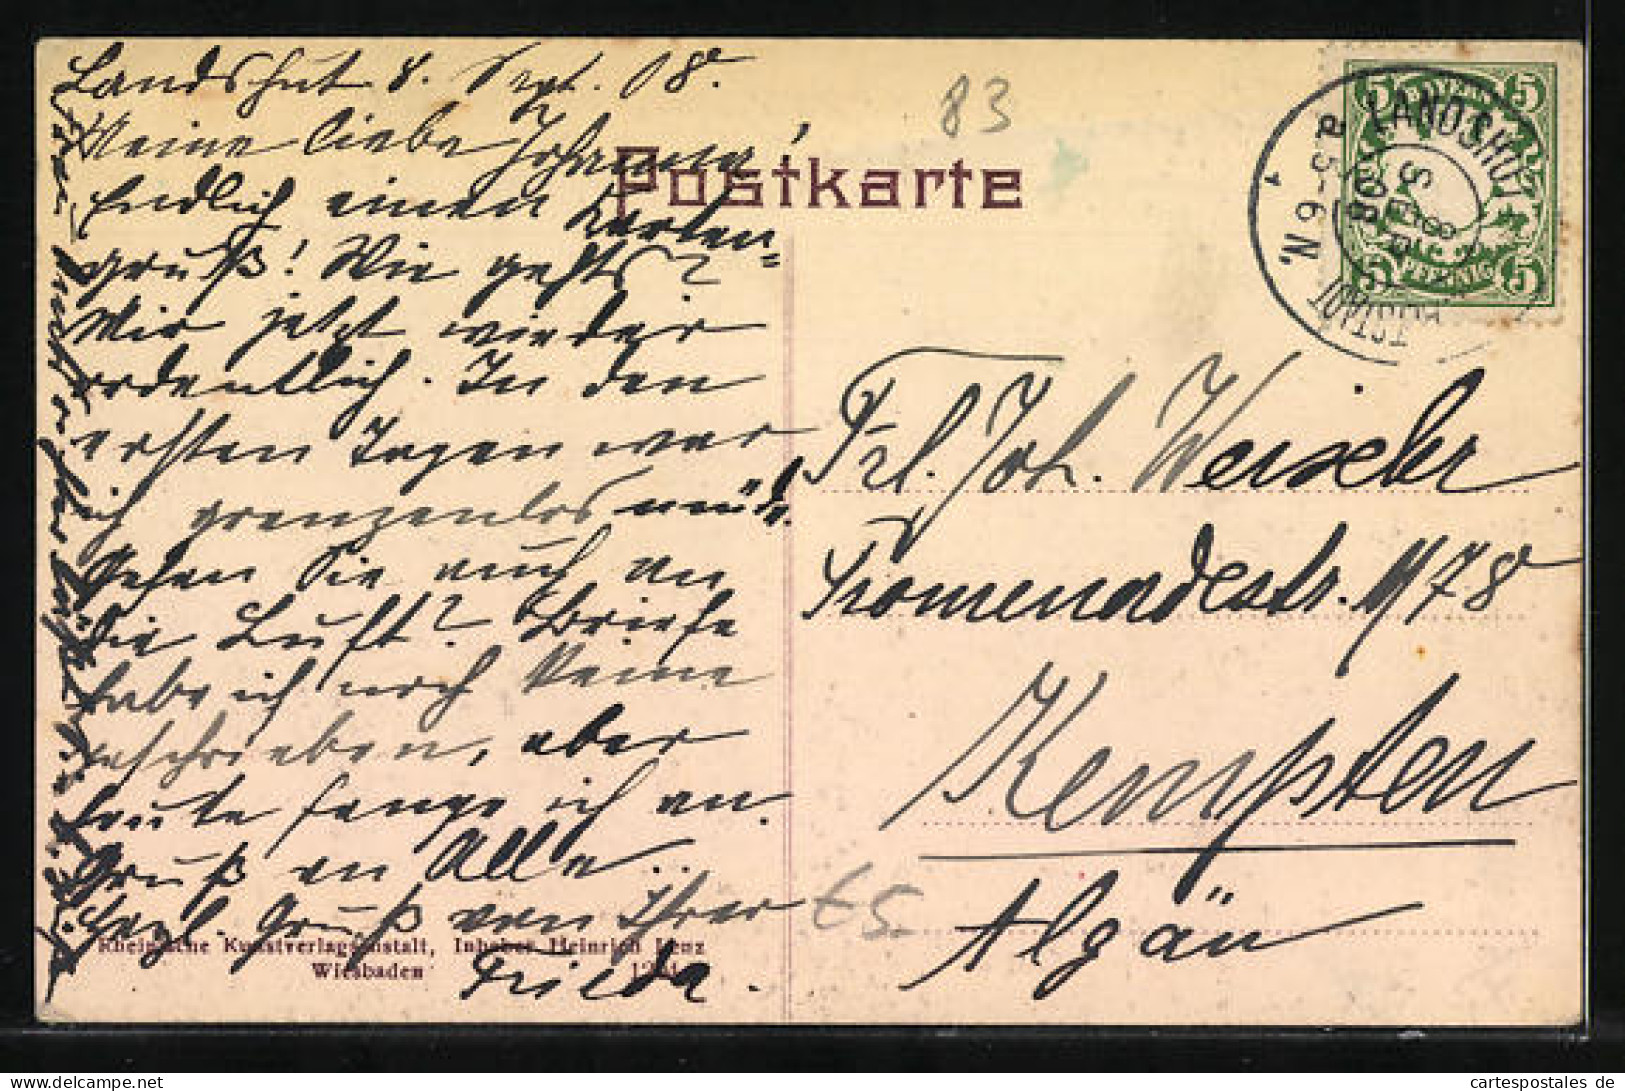 Landshut 8. Sept. 08.
Meine liebe Johanna!
Endlich einen Karten-
gruß! Wie gehts?
Mir jetzt wieder
ordentlich. In den
ersten Tagen war
ich grenzenlos müd.
Gehen Sie auch an
die Luft? Briefe
habe ich noch keine
geschrieben, aber
heute fange ich an.
Gruß an Alle.
Herzl. Gruß von Ihrer
Frieda.
Postkarte
83
5 5
BAYERN
LANDSHUT
8 SEP
N. 5-6 N.
PFENNIG
5 5
Frl. Joh. Weixler
Promenadestr. 178
Kempten
Algäu
65.
Rheinische Kunstverlagsanstalt, Inhaber Heinrich Lenz
Wiesbaden
cartespostales de